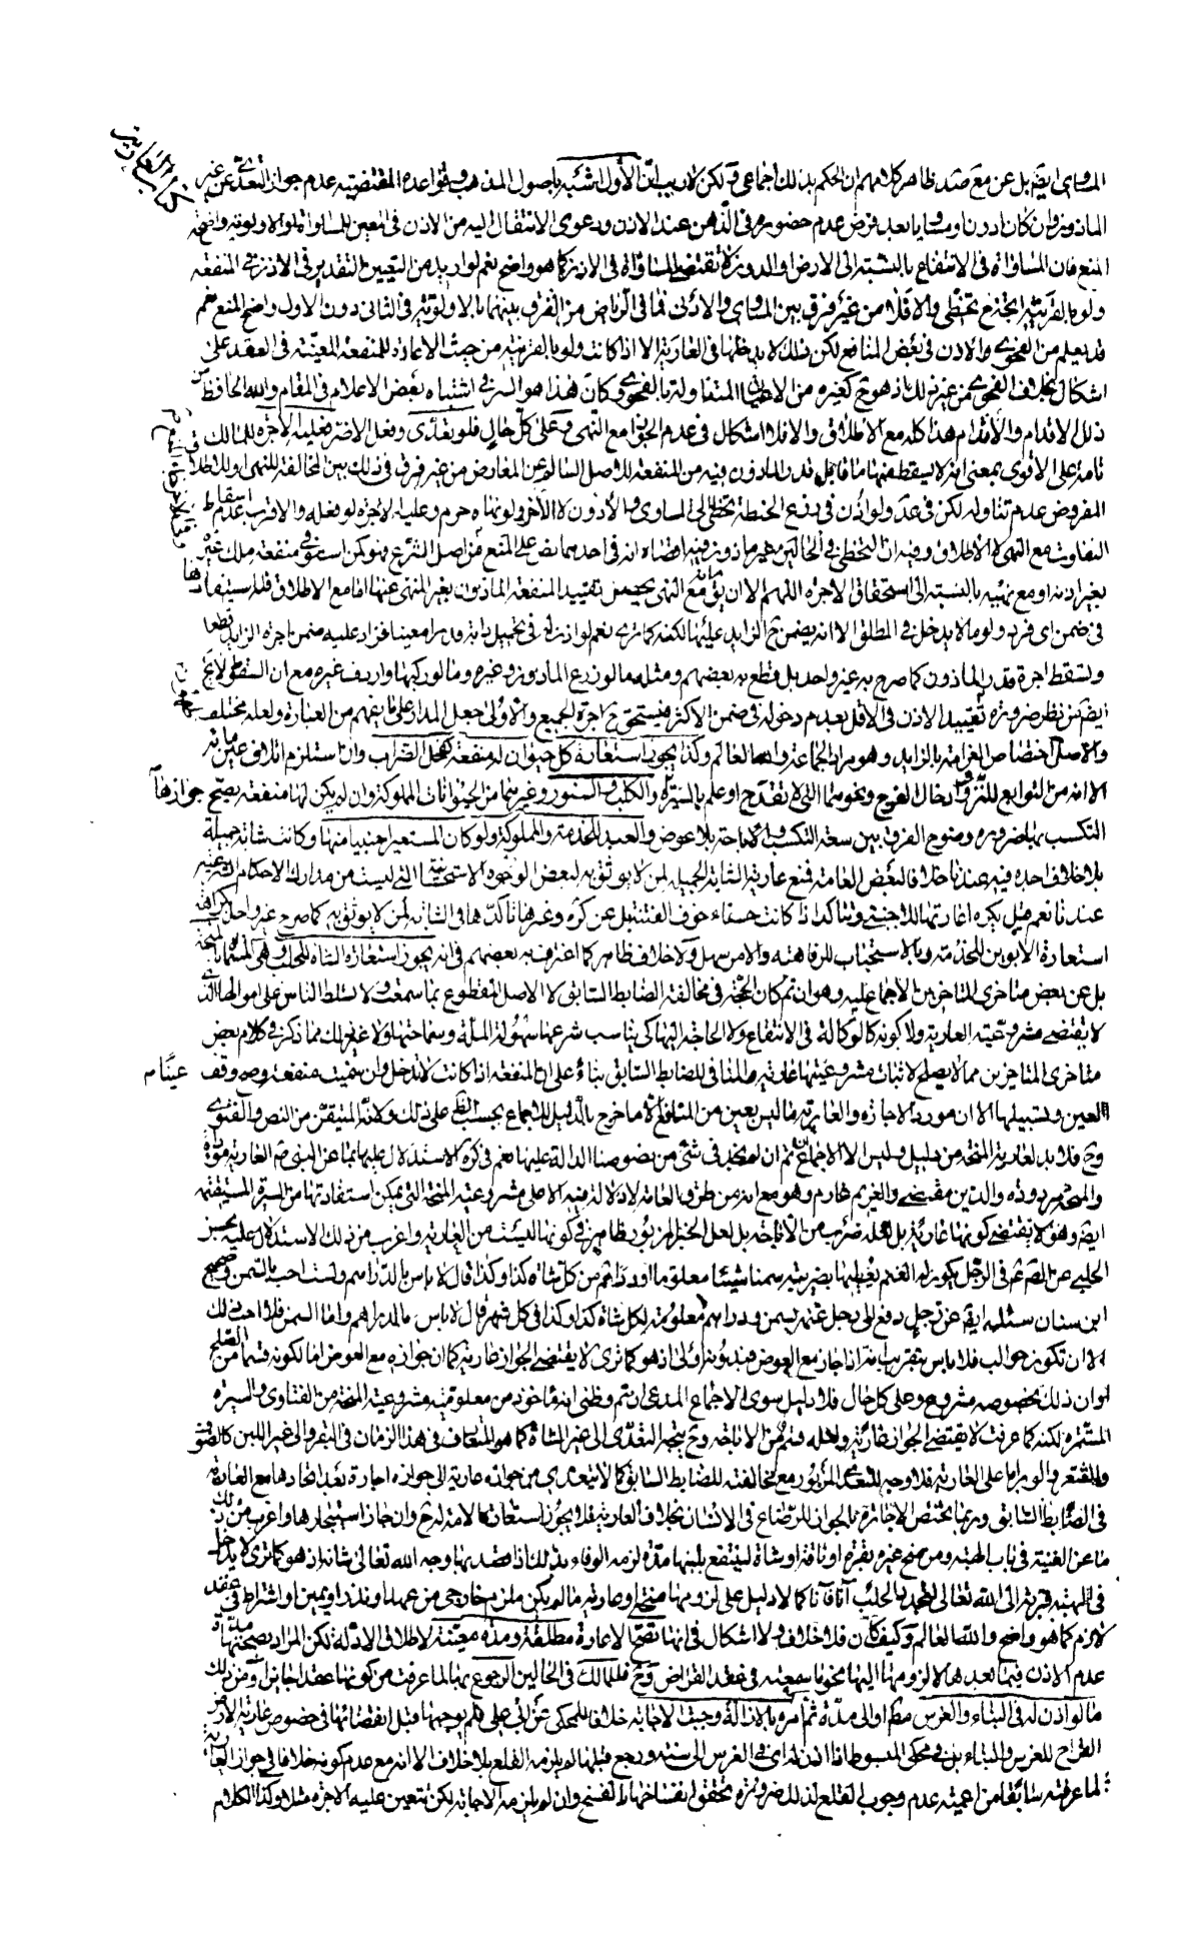 كتاب العارية
المساوي ايضا بل عن مع صد ظاهر كلامهم ان الحكم بذلك اجماعي ولكن لا ريب ان الأول اشبه باصول المذهب وقواعده المقتضية عدم جواز التعدي عن غير
الماذون وان كان ادون او مساويا بعد فرض عدم حضوره في الذهن عند الاذن ودعوى الانتقال اليه من الاذن في المعين للمساواة او الاولوية واضحة
المنع فان المساواة في الانتفاع بالنسبة الى الارض او الدون لا تقتضي المساواة في الاذن كما هو واضح نعم لو اريد من التعيين التقدير في الاذن في المنفعة
ولو بالقرينة اتجه تخطي والا فلا من غير فرق بين المساوي والادنى فما في الرياض من الفرق بينهما بالاولوية في الثاني دون الاول واضح المنع نعم
قد يعلم من الفحوى والاذن في بعض المنافع لكن ذلك لا يدخلها في العارية الا اذا كانت ولو بالقرينة من حيث الاعارة للمنفعة المعينة في العقد على
اشكال بخلاف الفحوى من غير ذلك اذ هو ح كغيره من الاعيان المتناولة بالفحوى كان هذا هو السر في اشتباه بعض الاعلام في المقام والله الحافظ من
ذلل الاقدام والأقلام هذا كله مع الاطلاق والا فلا اشكال في عدم الجواز مع النهي وعلى كل حال فلو تعدى وفعل الاضر فعليه الاجرة للمالك
تامة على الاقوى بمعنى انه لا يسقط منها ما قابل قدر الماذون فيه من المنفعة للاصل السالم عن المعارض من غير فرق في ذلك بين المخالفة للنهي او للاطلاق
المفروض عدم تناوله لكن في عد ولو اذن في زرع الحنطة تخطى الى المساوي والأدون لا الأضر ولو نهاه حرم وعليه الاجرة لو فعله والاقرب عدم اسقاط
التفاوت مع النهي لا الاطلاق وفيه ان التخطي في الحالين غير ماذون فيه
بغير اذنه او مع نهيه بالنسبة الى استحقاق الاجرة اللهم الا ان يق مانه مع النهي يحصل تقييد المنفعة الماذون بغير المنهي عنها اما مع الاطلاق فله استيفاؤها
في ضمن اي فرد ولو ما لا يدخل في المطلق الا انه يضمن ح الزايد عليها لكنه كما ترى نعم لو اذن له في تحميل دابة قدرا معينا فزاد عليه ضمن اجرة الزايد قطعا
وتسقط اجرة قدر الماذون كما صرح به غير واحد بل قطع به بعضهم ومثله ما لو زرع الماذون وغيره وما لو ركبها واردف غيره مع ان السقوط لا يخ
ايضا من نظر ضرورة تقييد الاذن في الاقل بعدم دخوله في ضمن الاكثر فيستحق ح اجرة الجميع والأولى جعل المدار على ما يفهم من العبارة ولعله مختلف
والاصل اختصاص الغرامة بالزايد وهو مراد الجماعة والله العالم وكذا يجوز استعارة كل حيوان له منفعة كفحل الضراب وان استلزم اتلاف عين مائه
الا انه من التوابع
التكسب بها لضرورة وضوح الفرق بين سعة التكسب والاباحة بلا عوض والعبد للخدمة والمملوكة ولو كان المستعير اجنبيا منها وكانت شابة جميلة
بلا خلاف اجده فيه عندنا خلافا لبعض العامة فمنع عارية الشابة الجميلة لمن لا يوثق به لبعض الوجوه الاستحسانية التي ليست من مدارك الاحكام الشرعية
عندنا نعم قيل يكره اعارتها للاجنبي وتتاكد اذا كانت حسناء خوف الفتنة بل عن كره وغيرها تاكدها في الشابة لمن لا يوثق به كما صرح غير واحد بكراهة
استعارة الأبوين للخدمة وبالاستحباب للرفاهية والامر سهل ولا خلاف ظاهر كما اعترف به بعضهم في انه يجوز استعارة الشاة للحلب وهي المسماة بالمنحة
بل عن بعض متاخري المتاخرين الاجماع عليه وهو ان تم كان الحجة في مخالفة الضابط السابق لا الاصل المقطوع بما سمعت ولا تسلط الناس على اموالها الذي
لا يقتضي مشروعية العارية ولا كونه كالوكالة في الانتفاع ولا الحاجة اليها كي يناسب شرعها سهولة الملة وسماحتها ولا غير ذلك مما ذكر في كلام بعض
متاخري المتاخرين مما لا يصلح لاثبات مشروعيتها عارية والمنافي للضابط السابق بناء على ان المنفعة اذا كانت
العين وتسبيلها الا ان مورد الاجارة والعارية ما ليس بعين من المنافع الا ما خرج بالدليل للاجماع بحسب الظ على ذلك ولانه المتيقن من النص والفتوى
وح فلا بد لعارية المنحة من دليل وليس الا الاجماع ان تم ان لم نجد في شئ من نصوصنا الدالة عليها نعم في كره الاستدلال عليها بما عن النبي ص العارية مؤداة
والمنحة مردودة والدين مقضي والغريم غارم وهو مع انه من طرق العامة لا دلالة فيه الا على مشروعية المنحة التي يمكن استفادتها من السيرة المستقيمة
ايضا وهو لا يقتضي كونها عارية بل لعله ضرب من الاباحة بل لعل الخبر المزبور ظاهر في كونها ليست من العارية واغرب من ذلك الاستدلال عليه بحسن
الحلبي عن الصادق ع في الرجل يكون له الغنم يعطيها بضريبة سمنا شيئا معلوما او دراهم من كل شاة كذا وكذا قال لا باس بالدراهم ولست احب بالسمن وصحيح
ابن سنان سئله ايضا عن رجل دفع الى رجل غنمه بسمن ودراهم معلومة لكل شاة كذا وكذا في كل شهر قال لا باس بالدراهم واما السمن فلا احب ذلك
الا ان تكون حوالب فلا باس بتقريب انه اذا جاز مع العوض فبدونه اولى اذ هو كما ترى لا يقتضي الجواز عارية كما ان جوازه مع العوض اما لكونه قسما من الصلح
او ان ذلك بخصوصه مشروع وعلى كل حال فلا دليل سوى الاجماع المدعى ان تم وظني انه ماخوذ من معلومية مشروعية المنحة من الفتاوى والسيرة
المستمرة لكنه كما عرفت لا يقتضي الجواز عارية ولعله قسم من الاباحة وح يتجه التعدي الى غير الشاة كما هو المتعارف في هذا الزمان في البقر والى غير اللبن كالصوف
والشعر والوبر اما على العارية فلا وجه للتعدي المزبور مع مخالفته للضابط السابق كما لا يتعدى من جوازه عارية الى جوازه اجارة بعد اتحادها مع العارية
في الضابط السابق وربما يختص الاجارة بالجواز للرضاع في الانسان بخلاف العارية فلا يجوز استعارة الامة له ح وان جاز استيجارها واغرب من ذلك
ما عن الغنية في باب الهبة ومن منح غيره بقرة او ناقة او شاة لينتفع بلبنها مدة لزمه الوفاء بذلك اذا قصد بها وجه الله تعالى شانه اذ هو كما ترى لا يدخل
في الهبة قربة الى الله تعالى لتجدد الحلب آنا فآنا كما لا دليل على لزومها منحة او عارية ما لم يكن ملزم خارجي من عهد او نذر او يمين او اشتراط في عقد
لازم كما هو واضح والله العالم وكيف كان فلا خلاف ولا اشكال في انها تصح الاعارة مطلقة ومدة معينة لاطلاق الادلة لكن المراد بصحتها مدة
عدم الاذن فيما بعدها لا لزومها اليها
ما لو اذن له في البناء والغرس مطلقا او الى مدة ثم امره بالازالة وجبت الاجابة خلافا للمحكي عن ابي علي فلم يوجبها قبل انقضائها في خصوص عارية الارض
القراح للغرس والبناء بل في محكي المبسوط اذا اذن له اي في الغرس الى سنة ورجع قبلها لم يلزمه القلع بلا خلاف الا انه مع عدم كونه خلافا في جواز العارية
لما عرفته سابقا من اعمية عدم وجوب القلع لذلك ضرورة تحقق انفساخها بالفسخ وان لم يلزمه الاجابة لكن يتعين عليه الاجرة مثلا وكذا الكلام